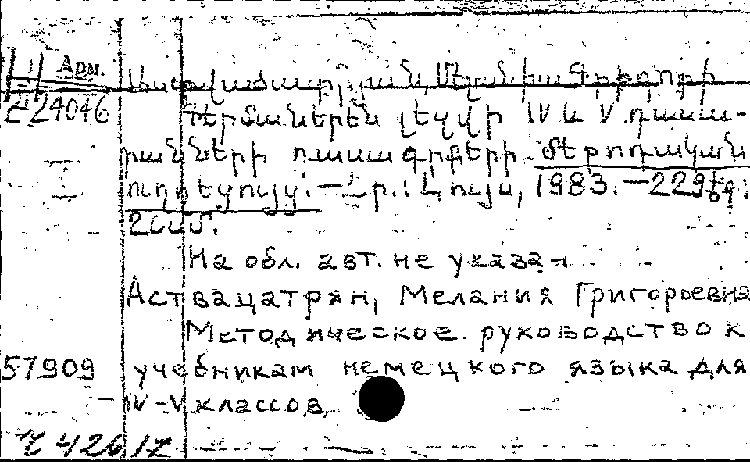 Арм.
Աստվածատրյան, Մելանիա Գրիգորի
24046
Գերմաներեն լեզվի IV և V դասա-
րանների դասագրքերի մեթոդական
ուղեցույց։ — Եր.։ Լույս, 1983. — 229 էջ։
На обл. авт. не указан
Аствацатрян, Мелания Григорьевна
Методическое руководство к
57909 учебникам немецкого языка для
IV-V классов